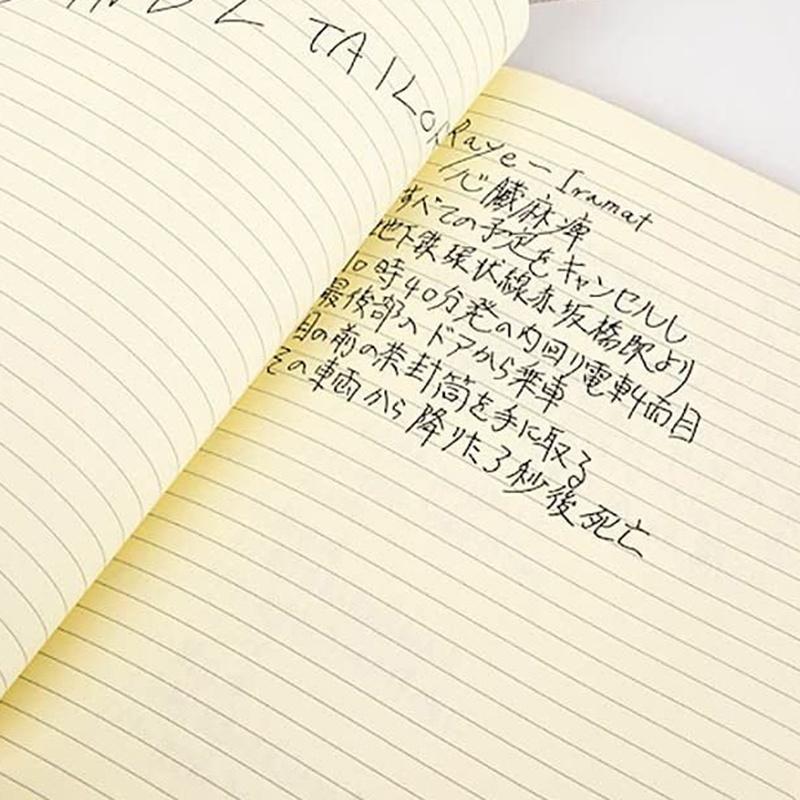 ND L TAILOR
Raye-Iramat
心臓麻痺
すべての予定をキャンセルし
地下鉄環状線赤坂橋駅より
10時40分発の内回り電車4両目
最後部のドアから乗車
目の前の茶封筒を手に取る
その車両から降りた3秒後死亡